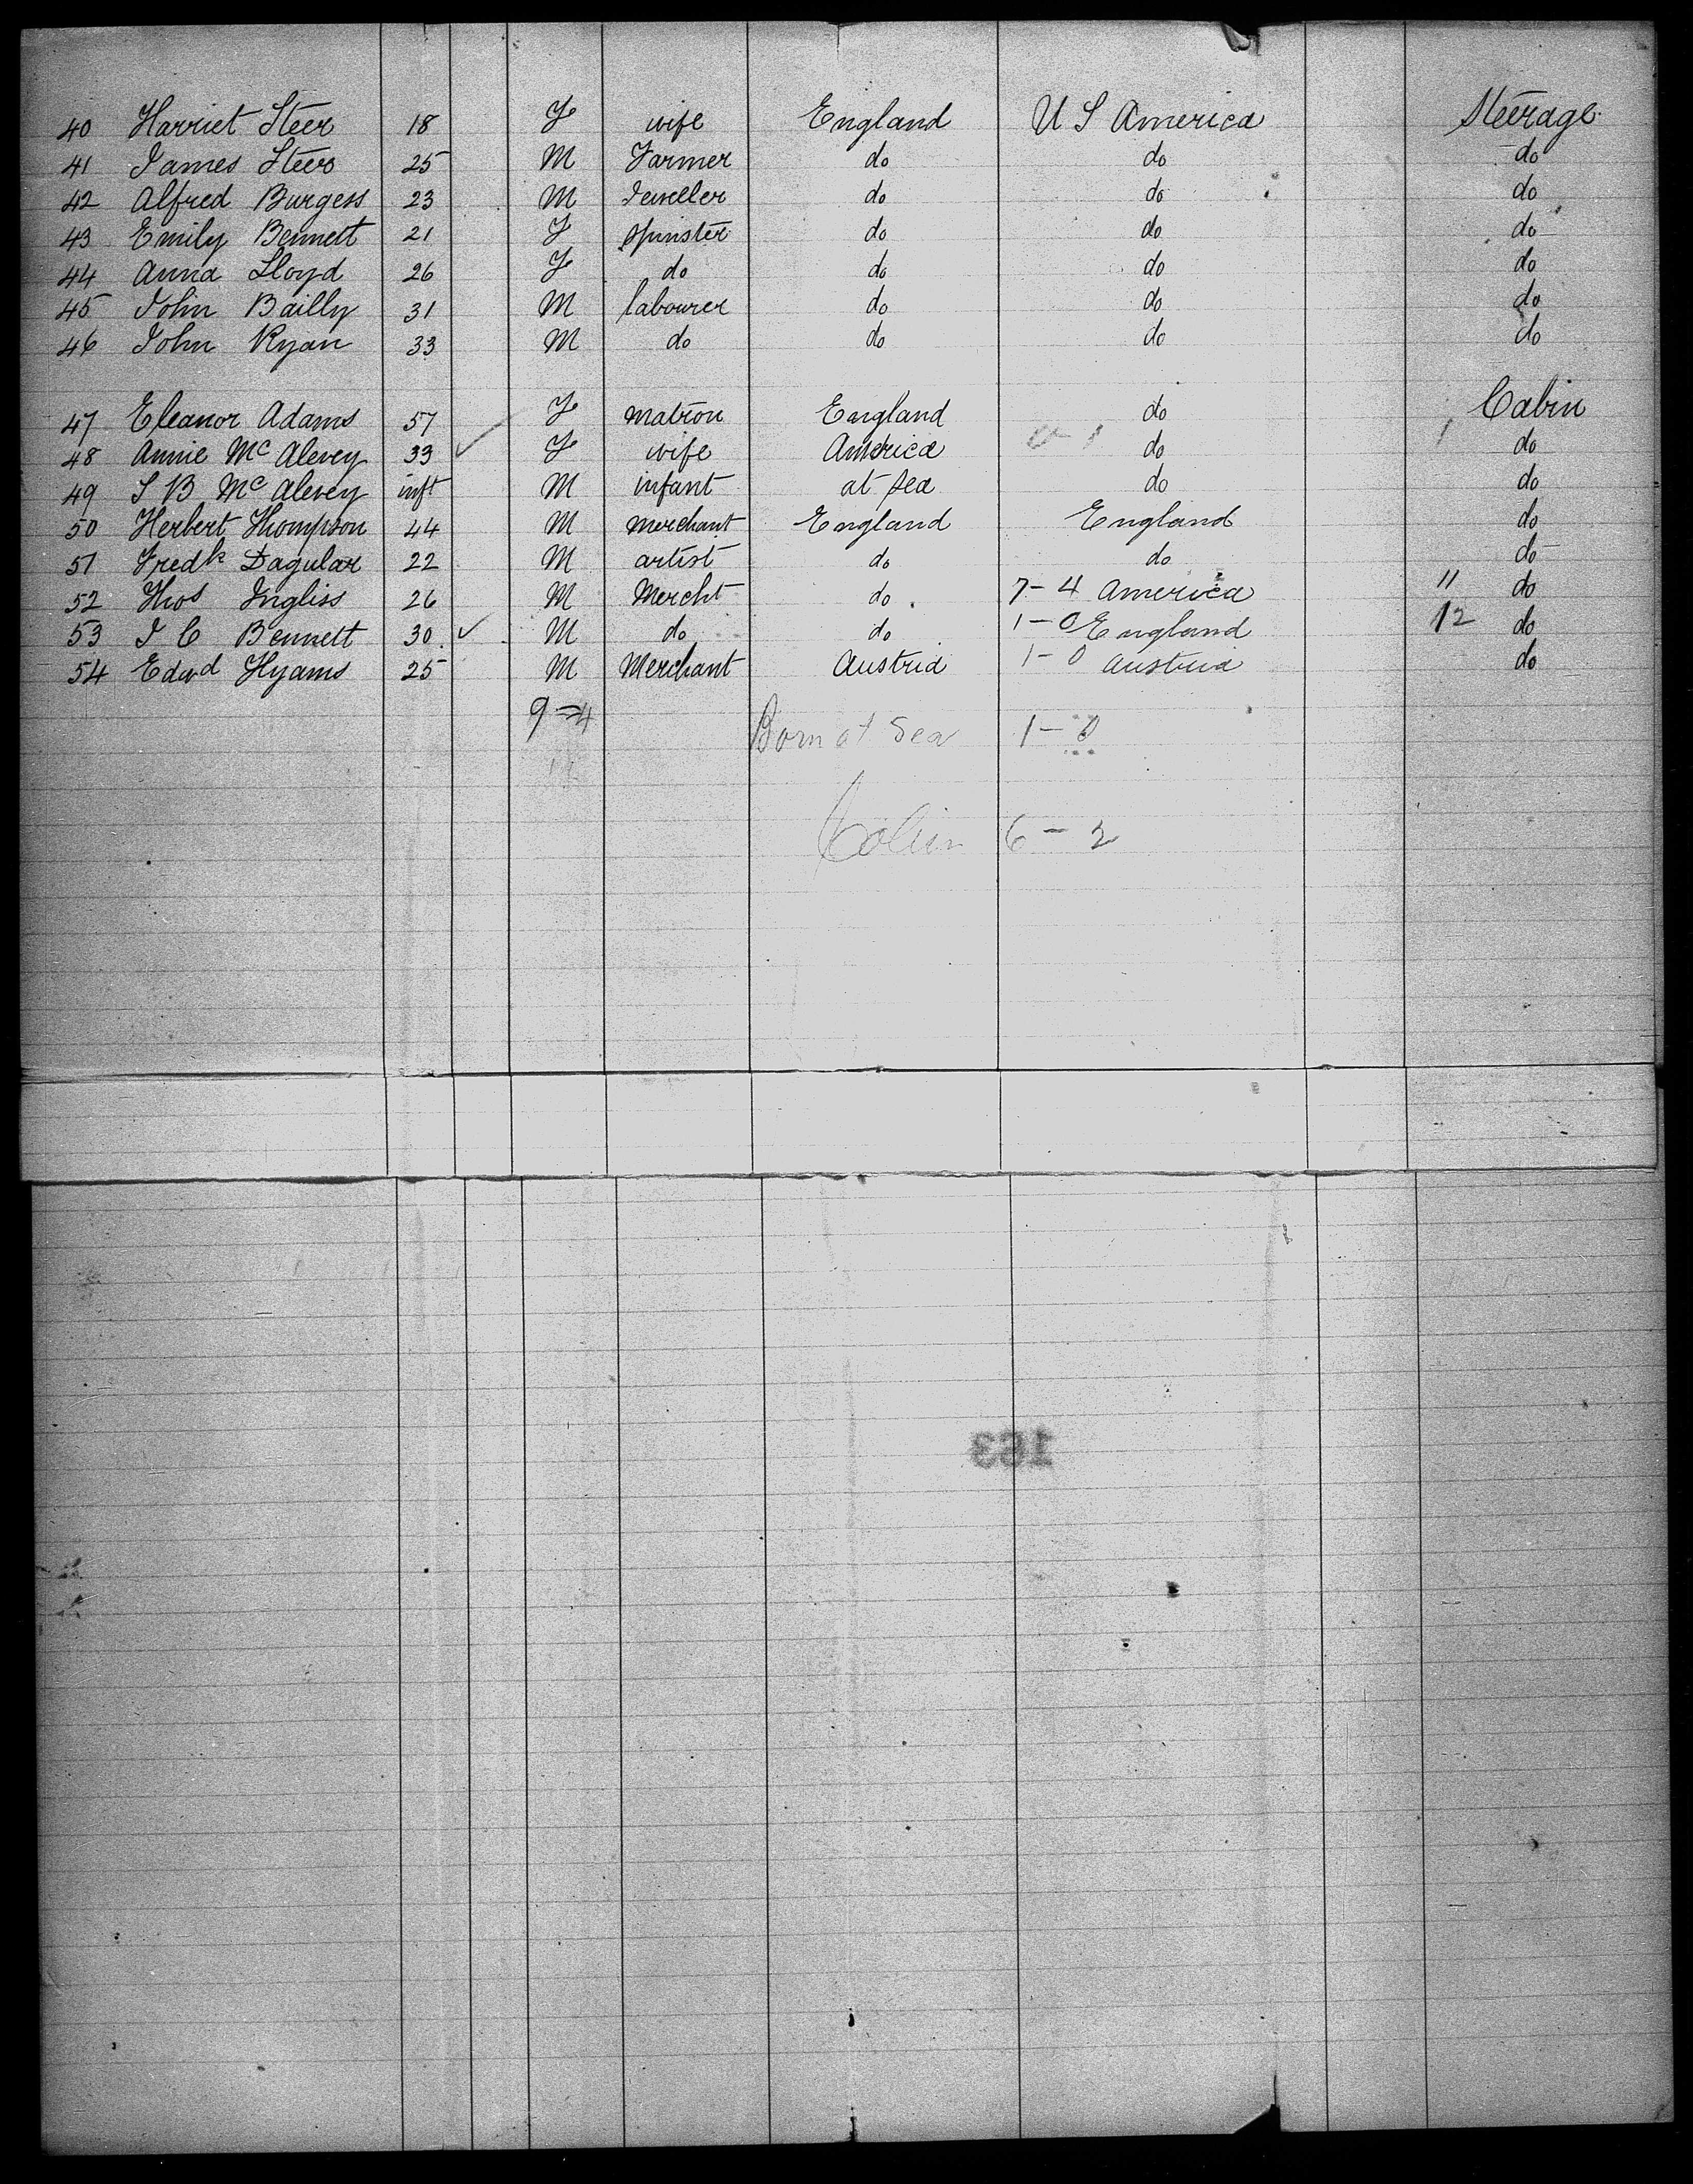 40 Harriet Steer 18 F wife England U S America Steerage
41 James Steer 25 M Farmer do do do
42 Alfred Burgess 23 M Jeweller do do do
43 Emily Bennett 21 F spinster do do do
44 Anna Lloyd 26 F do do do do
45 John Bailly 31 M labourer do do do
46 John Ryan 33 M do do do do
47 Eleanor Adams 57 F matron England do Cabin
48 Annie Mc Alevey 33 ✓ F wife America do 1 do
49 S B Mc Alevey inft M infant at sea do do
50 Herbert Thompson 44 M merchant England England do
51 Fredk Dagular 22 M artist do do do
52 Thos Ingliss 26 M Mercht do 7-4 America 11 do
53 J C Bennett 30 ✓ M do do 1-0 England 12 do
54 Edwd Hyams 25 M Merchant Austria 1-0 Austria do
9-4 Born at Sea 1-0
Cabin 6-2
163